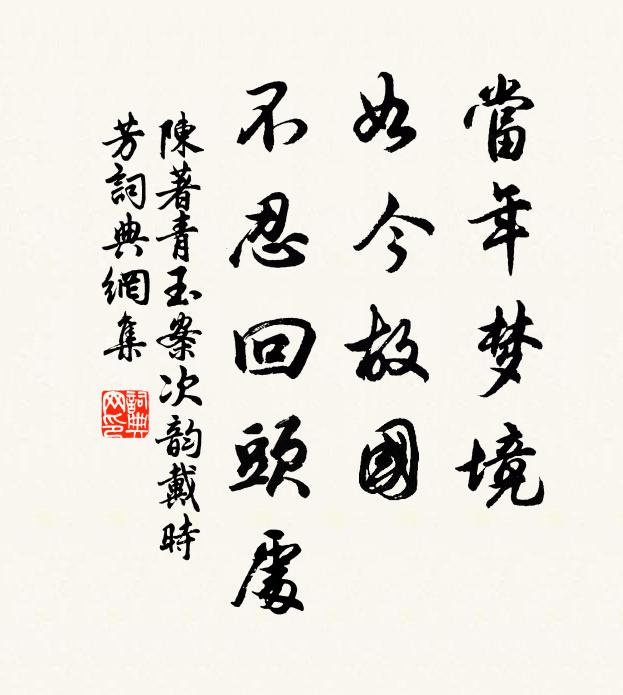 當年梦境
如今故國
不忍回頭處
陳著青玉案次韵戴時
芳詞典網集
詞典
网印